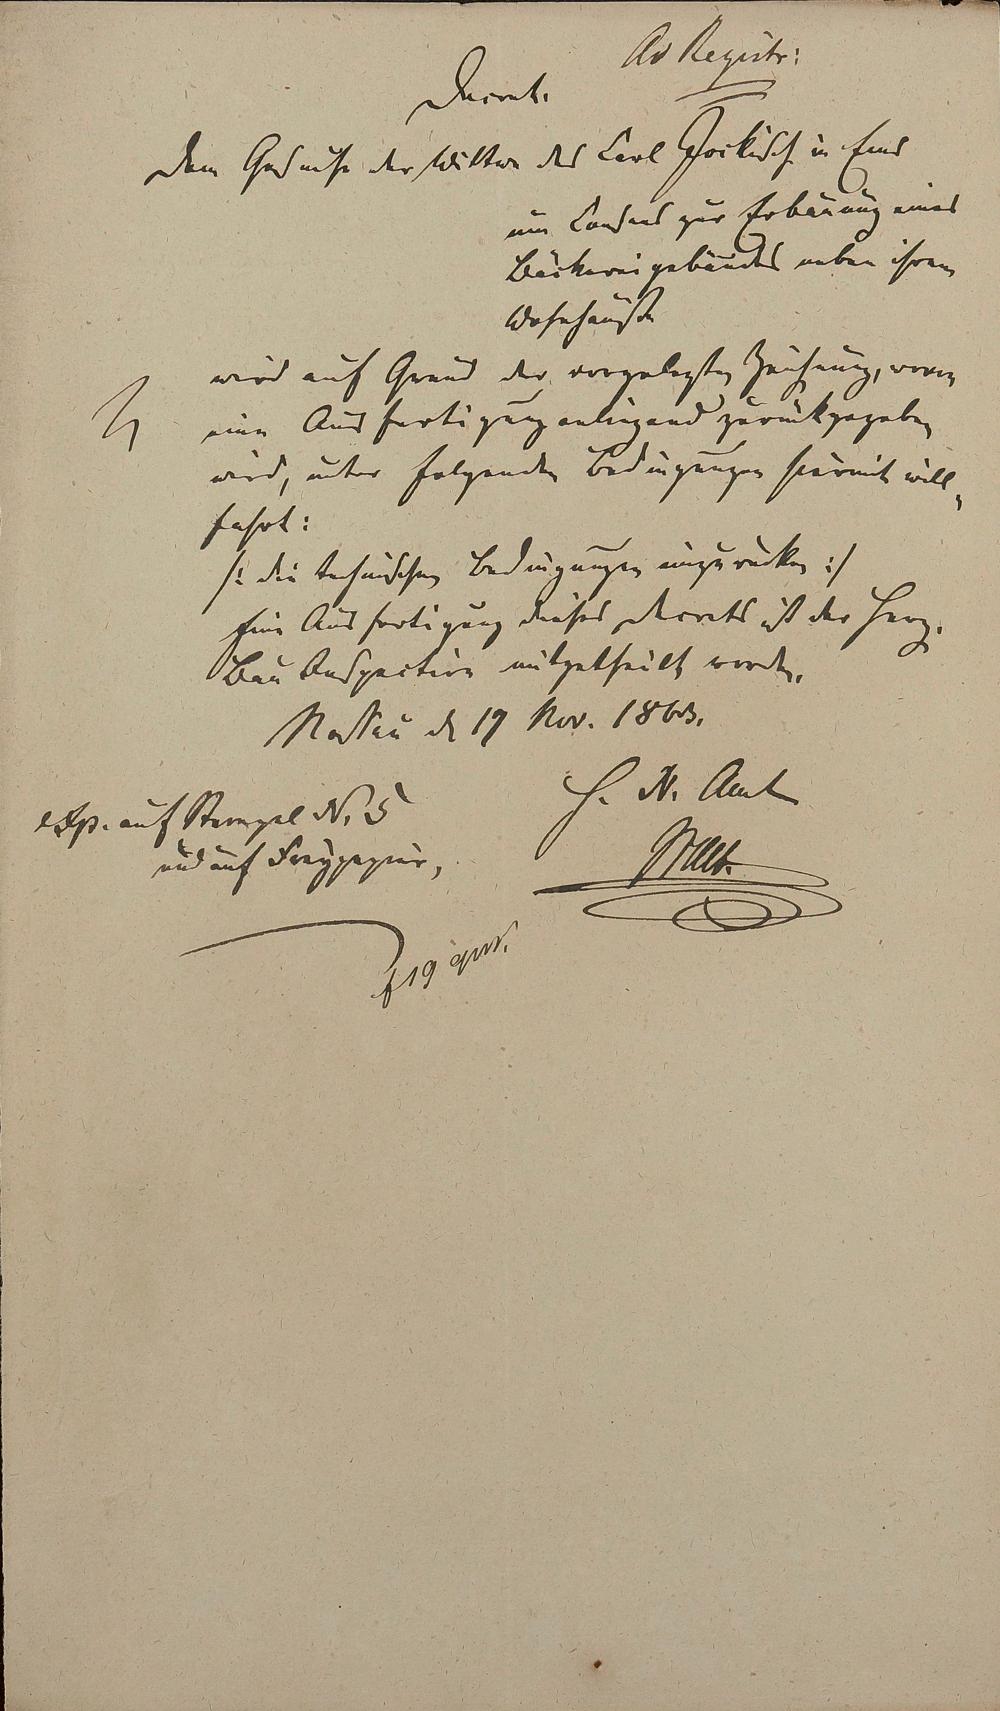 Ad Registr:
Decret.
Dem Gesuche der Wittwe des Carl Jockisch in Ems
um Consens zur Erbauung eines
Bäckereigebäudes neben ihrem
Wohnhauße
wird auf Grund der vorgelegten Zeichnung, wovon
eine Ausfertigung anliegend zurückgegeben
wird, unter folgenden Bedingungen hiermit will-
fahrt:
/: die technischen Bedingungen einzurücken :/
Eine Ausfertigung dieses Decrets ist der Herz.
Bau Inspection mitgetheilt worden.
Nassau d 19 Nov. 1863.
H. N. Amt
exp. auf Stempel N. 5
und auf Freypapier,
19